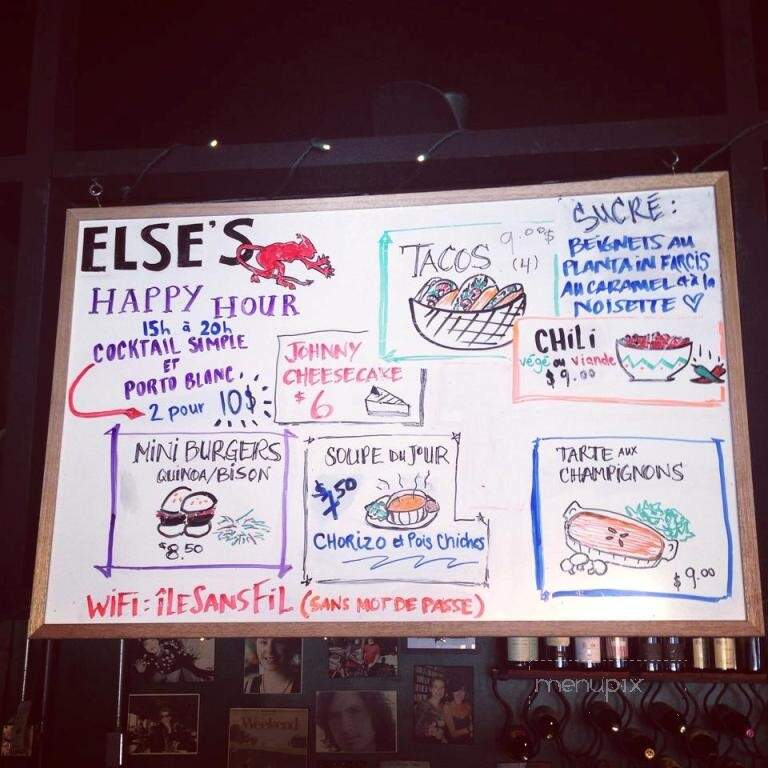 ELSE'S
HAPPY HOUR
15h à 20h
COCKTAIL SIMPLE
ET
PORTO BLANC.
2 pour 10$
TACOS 9.00$
(4)
SUCRÉ:
BEIGNETS AU
PLANTAIN FARCIS
AU CARAMEL & à la
NOISETTE
JOHNNY
CHEESECAKE
$6
CHiLi
végé ou viande
$9.00
MINI BURGERS
QUINOA/BISON
$8.50
SOUPE DU JOUR
$
50
CHORIZO et Pois Chiches
TARTE AUX
CHAMPIGNONS
$9.00
WIFI: ÎLESANSFIL (SANS MOT DE PASSE)
Weekend
menupix